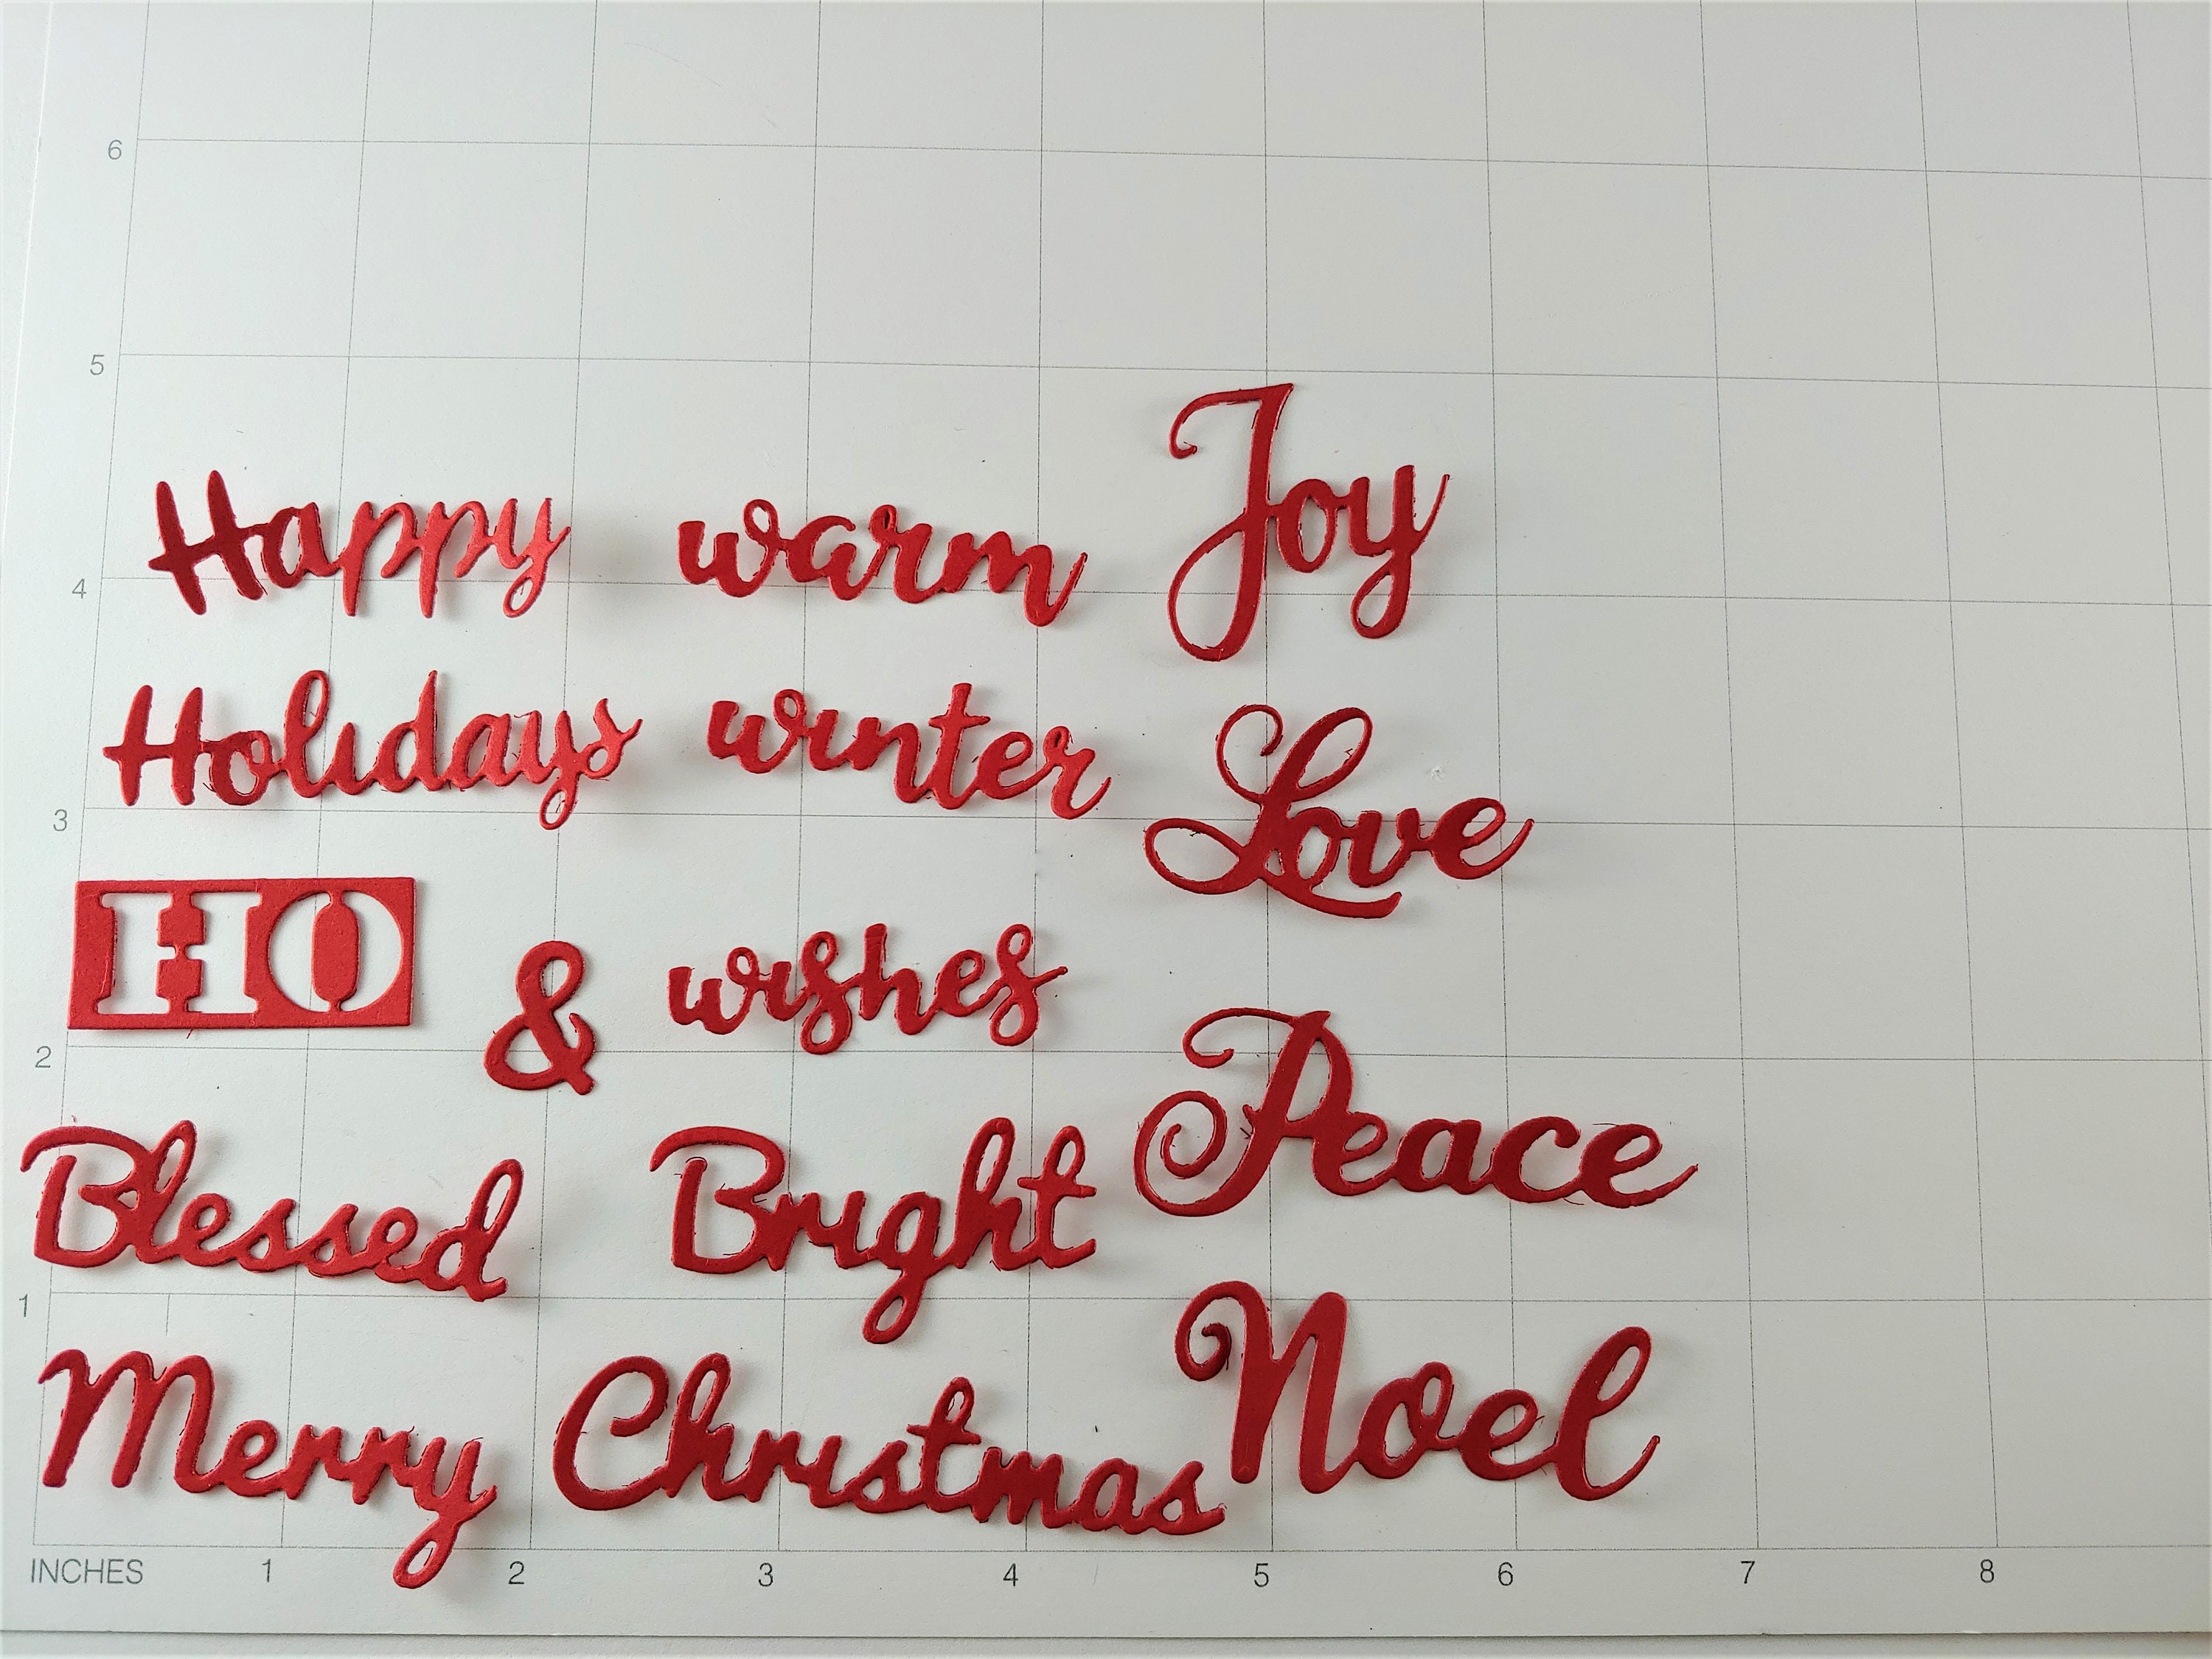 6
5
Happy warm Joy
4
Holidays winter Love
3
HO & wishes
2
Peace
Blessed Bright
1
Noel
Merry Christmas
INCHES 1 2 3 4 5 6 7 8